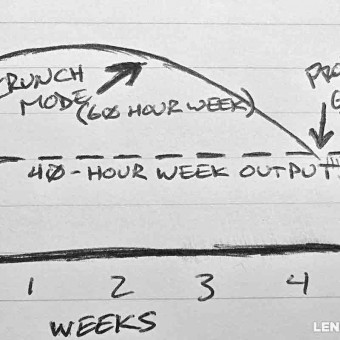 CRUNCH
MODE
(60 HOUR WEEK)
PRO
G
40-HOUR WEEK OUTPUT
1 2 3 4
WEEKS
LEN